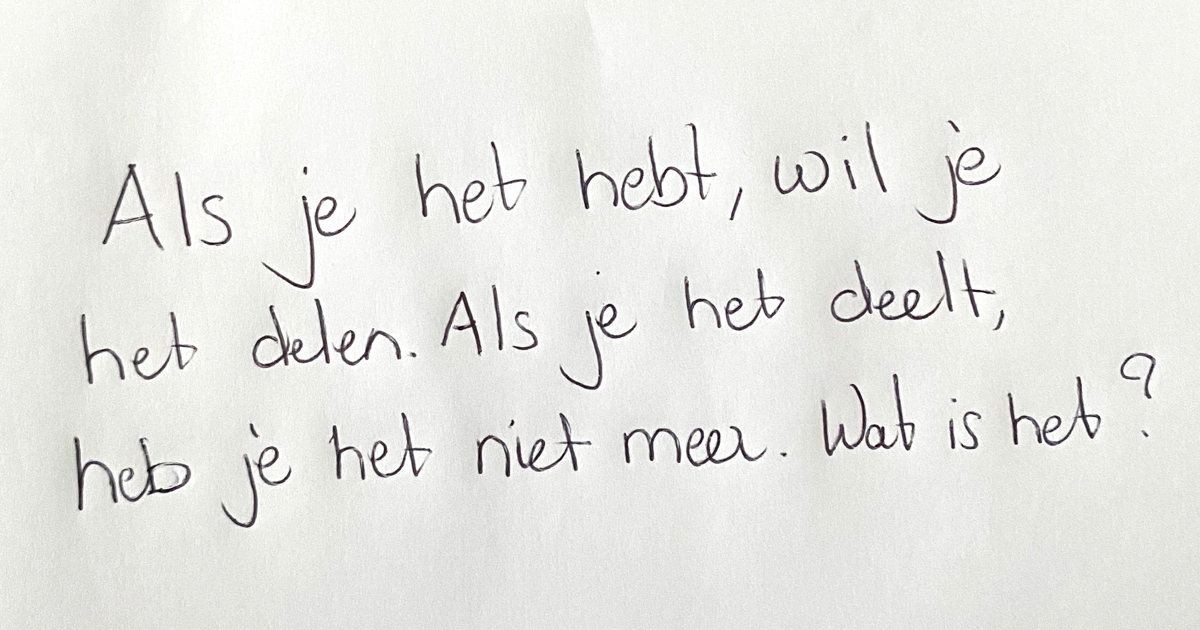 Als je het hebt, wil je
het delen. Als je het deelt,
heb je het niet meer. Wat is het?